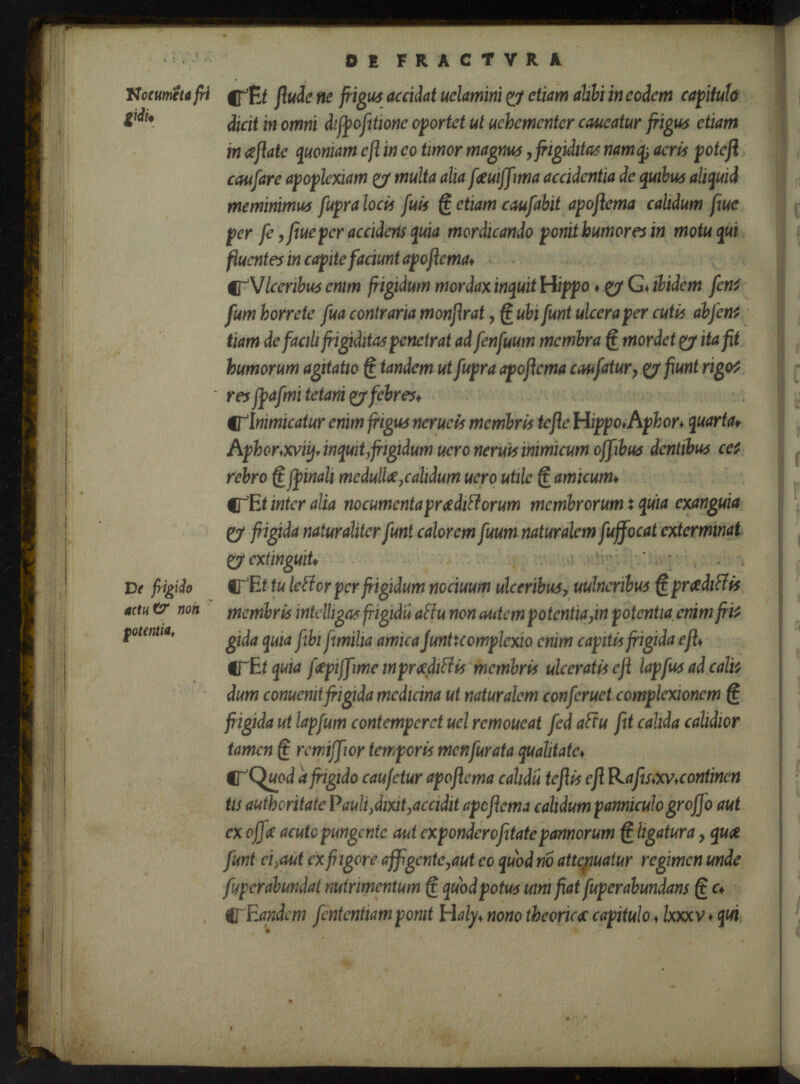 DE FRACTVRA
Nocumēta fri
gidi.
⸿Et stude ne frigus accidat uelamini & etiam alibi in eodem capitulo
dicit in omni dispositione oportet ut uehementer caueatur frigus etiam
in æstate quoniam est in eo timor magnus, frigiditas namq; acris potest
causare apoplexiam & multa alia sæuissima accidentia de quibus aliquid
meminimus supra locis suis & etiam causabit apostema calidum siue
per se, siue per accidens quia mordicando ponit humores in motu qui
fluentes in capite faciunt apostema.
⸿Vlceribus enim frigidum mordax inquit Hippo. & G. ibidem sen=
sum horrete sua contraria monstrat, & ubi sunt ulcera per cutis absen=
tiam de facili frigiditas penetrat ad sensuum membra & mordet & ita fit
humorum agitatio & tandem ut supra apostema causatur, & fiunt rigo=
res spasmi tetani & febres.
⸿Inimicatur enim frigus nerueis membris teste Hippo. Aphor. quarta.
Aphor.xviij. inquit, frigidum uero neruis inimicum ossibus dentibus ce=
rebro & spinali medullæ, calidum uero utile & amicum.
⸿Et inter alia nocumenta prædictorum membrorum: quia exanguia
& frigida naturaliter sunt calorem suum naturalem suffocat exterminat
& extinguit.
De frigido
actu & non
potentia.
⸿Et tu lector per frigidum nociuum ulceribus, uulneribus & prædictis
membris intelligas frigidū actu non autem potentia, in potentia enim fri=
gida quia sibi similia amica sunt: complexio enim capitis frigida est.
⸿Et quia sæpissime in prædictis membris ulceratis est lapsus ad cali=
dum conuenit frigida medicina ut naturalem conseruet complexionem &
frigida ut lapsum contemperet uel remoueat sed actu sit calida calidior
tamen & remissior temporis mensurata qualitate.
⸿Quod à frigido causetur apostema calidū testis est Rasis.xv.continen
tis authoritate Pauli, dixit, accidit apostema calidum panniculo grosso aut
ex ossæ acute pungente aut ex ponderositate pannorum & ligatura, quæ
sunt ei, aut ex frigore affigente, aut eo quòd nō attenuatur regimen unde
superabundat nutrimentum & quòd potus uini fiat superabundans & c.
⸿Eandem sententiam ponit Haly. nono theoricæ capitulo. lxxxv. qui